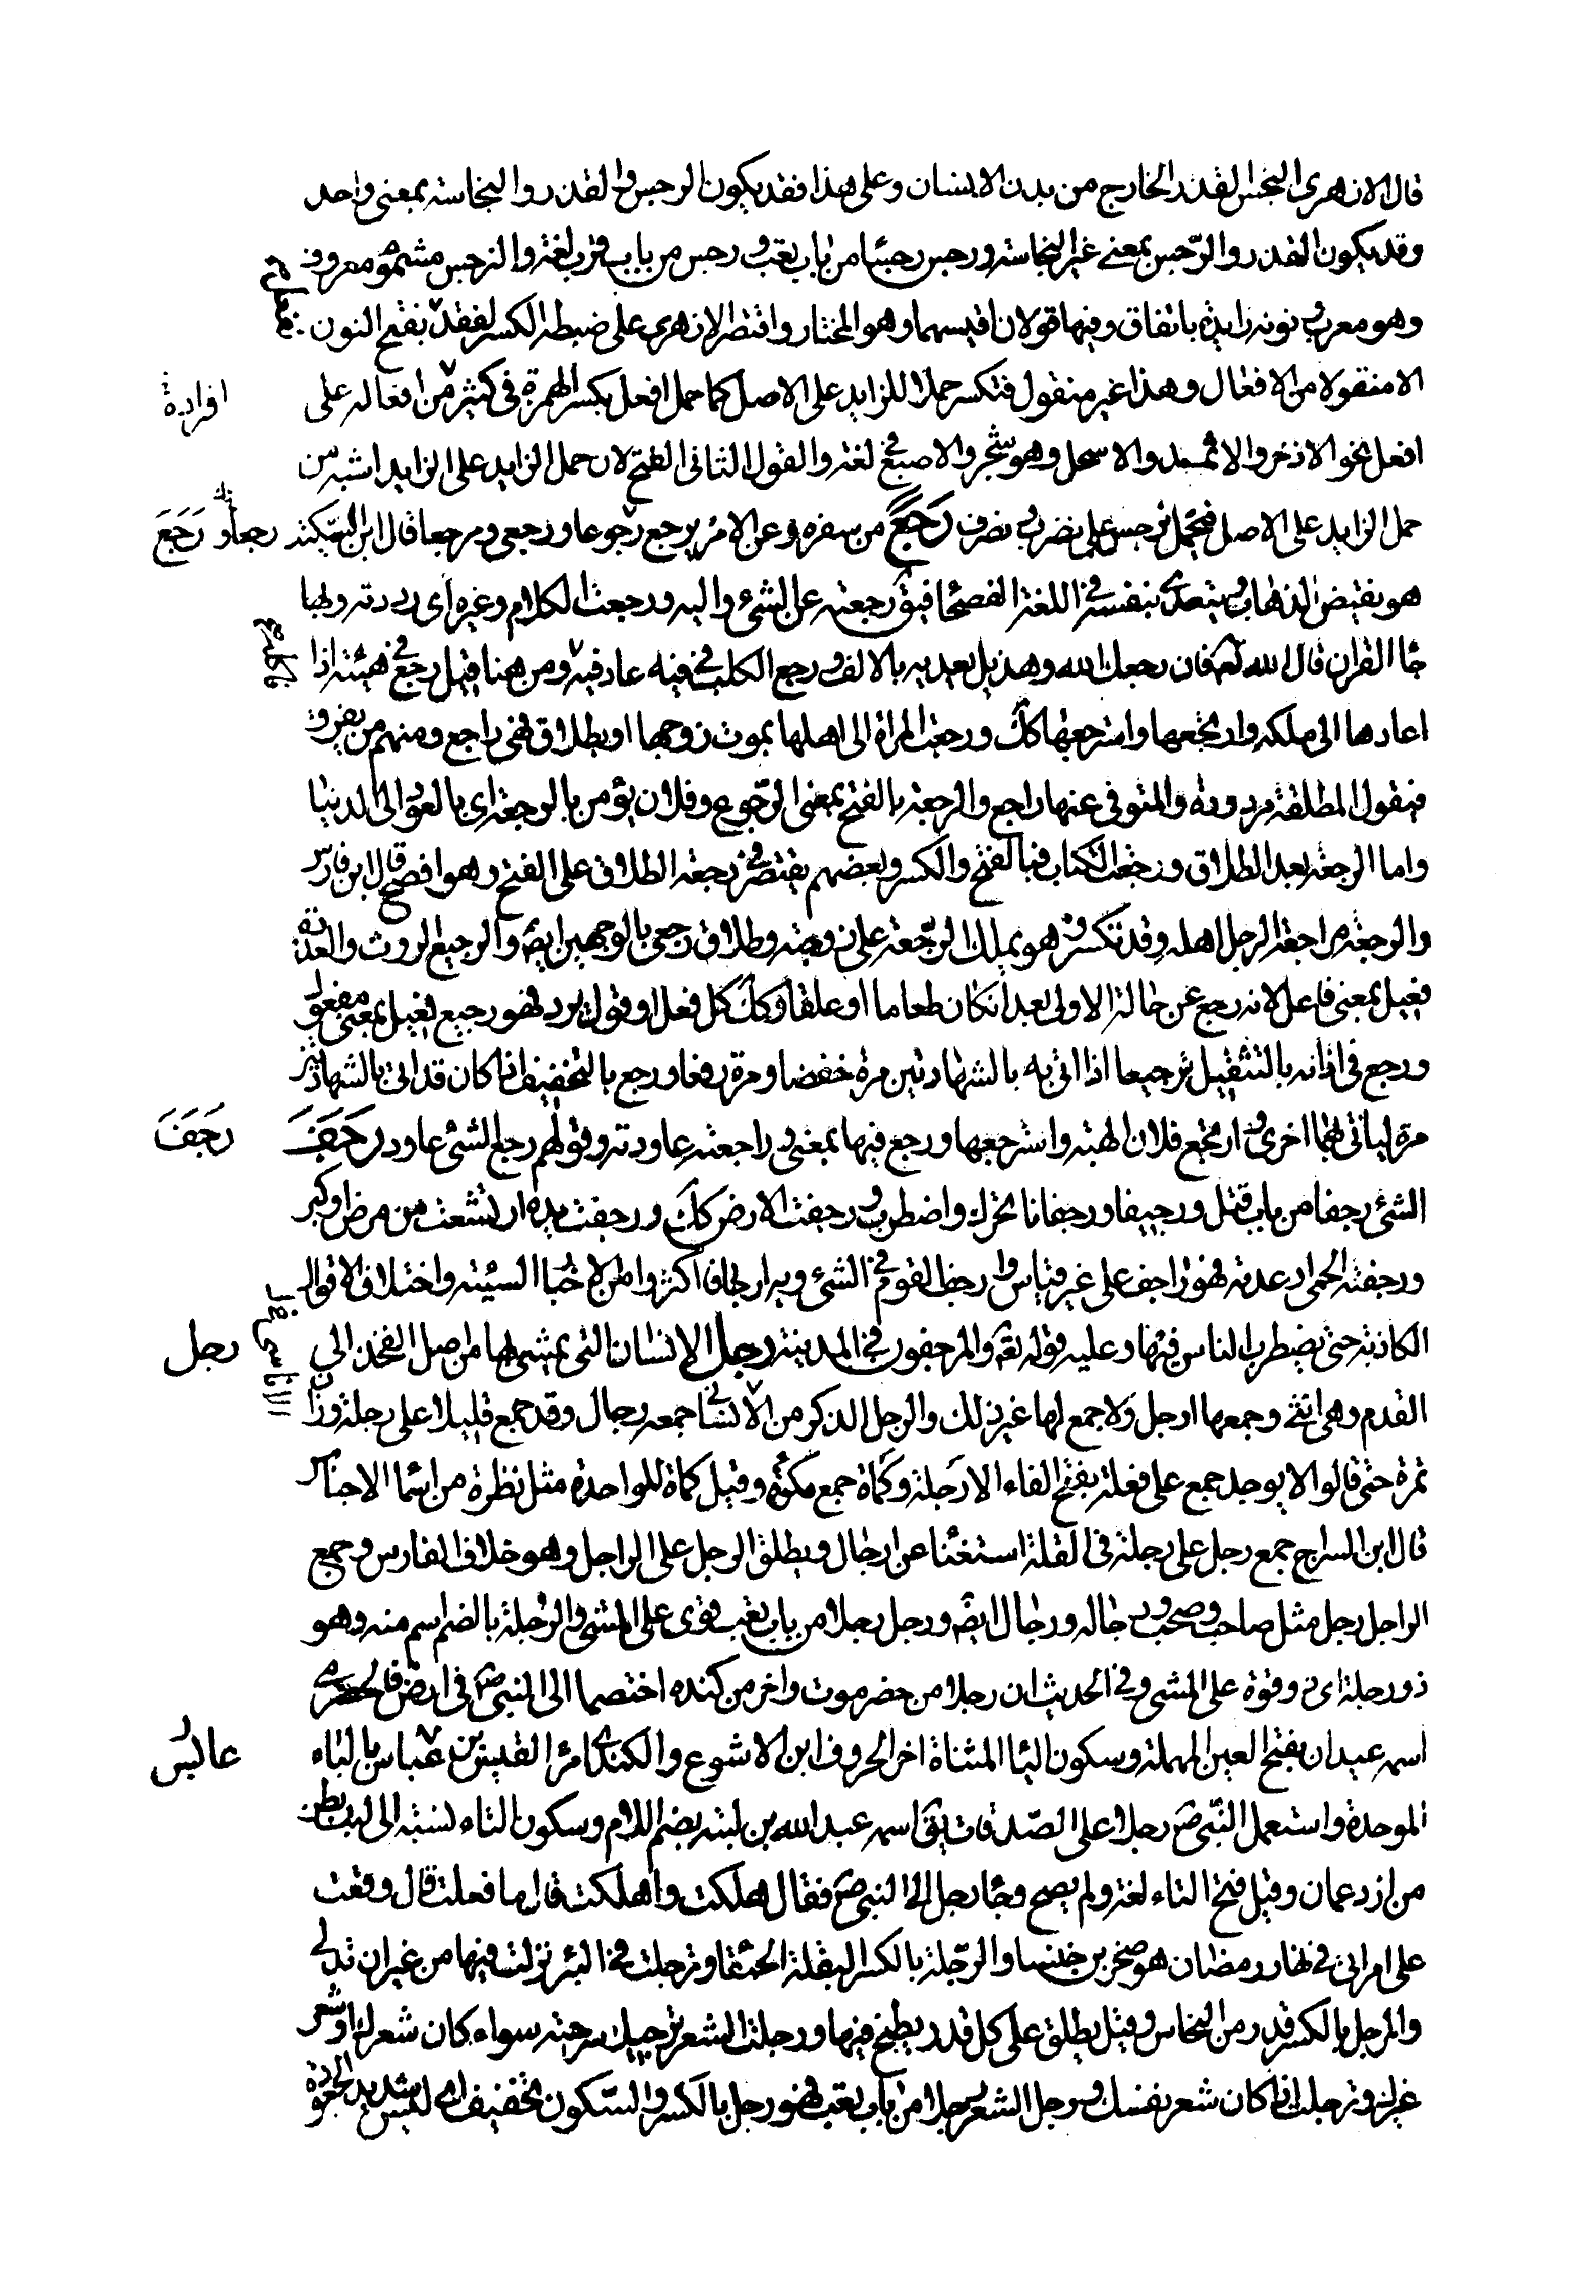 قال الازهرى النجس القذر الخارج من بدن الانسان وعلى هذا فقد يكون الرجس والقذر والنجاسة بمعنى واحد
وقد يكون القذر والرجس بمعنى غير النجاسة ورجس رجسا من باب تعب ورجس من باب قرب لغة والنرجس مشموم معروف
وهو معرب ونونه زايدة باتفاق وفيها قولان اقيسهما وهو المختار واقتصر الازهرى على ضبطه الكسر لفقد نفعل بفتح النون
الا منقولا من الافعال وهذا غير منقول فتكسر حملا للزايد على الاصل كما حمل افعل بكسر الهمزة فى كثير من افعاله على
افراده
افعل نحو الاذخر والاثمد والاسحل وهو شجر والاصبع فى لغة والقول الثانى الفتح لان حمل الزايد على الزايد اشبه من
حمل الزايد على الاصل فيحمل نرجس على نضرب ونصرف رجع من سفره وعن الامر يرجع رجوعا ورجعى ومرجعا قال ابن السكيت
رجعا و رَجَعَ
هو نقيض الذهاب ويتعدى بنفسه فى اللغة الفصحا فيق رجعته عن الشىء واليه ورجعت الكلام وغيره اى رددته وبها
جا القران قال الله تعم فان رجعك الله وهذيل تعديه بالالف ورجع الكلب فى قيئه عاد فيه ومن هنا قيل رجع فى هبته اذا
اعادها الى ملكه وارتجعها واسترجعها كك ورجعت المراة الى اهلها بموت زوجها او بطلاق فهى راجع ومنهم من يفرق
فيقول المطلقة مردودة والمتوفى عنها راجع والرجعة بالفتح بمعنى الرجوع وفلان يؤمن بالرجعة اى بالعود الى الدنيا
واما الرجعة بعد الطلاق ورجعة الكتاب فبالفتح والكسر وبعضهم يقتصر فى رجعة الطلاق على الفتح وهو افصح قال ابن فارس
والرجعة مراجعة الرجل اهله وقد تكسر وهو يملك الرجعة على زوجته وطلاق رجعى بالوجهين ايضا والرجيع الروث والعذرة
فعيل بمعنى فاعل لانه رجع عن حالته الاولى بعد ان كان طعاما او علفا وكك كل فعل او قول يرد فهو رجيع فعيل بمعنى مفعول
ورجع فى اذانه بالتثقيل ترجيعا اذا اتى به بالشهادتين مرة خفضا ومرة رفعا ورجع بالتخفيف اذا كان قد اتى بالشهادتين
مرة لياتى بهما اخرى وارتجع فلان الهبة واسترجعها ورجع فيها بمعنى وراجعته عاودته وقولهم رجع الشىء عاود رَجَفَ
رَجَفَ
الشىء رجفا من باب قتل ورجيفا ورجفانا تحرك واضطرب ورجفت الارض كك ورجفت يده ارتعشت من مرض او كبر
ورجفته الحمى ارعدته فهو راجف على غير قياس وارجف القوم فى الشىء وبه ارجافا اكثروا من الاخبار السيئة واختلاف الاقوال
الكاذبة حتى يضطرب الناس فيها وعليه قوله تعم والمرجفون فى المدينة رجل الانسان التى يمشى بها من اصل الفخذ الى
رجل
القدم وهى انثى وجمعها ارجل ولا جمع لها غير ذلك والرجل الذكر من الاناسى جمعه رجال وقد جمع قليلا على رجلة وزان
تمرة حتى قالوا لا يوجد جمع على فعلة بفتح الفاء الا رجلة وكماة جمع كمء وقيل كماة للواحدة مثل نظرة من اسما الاجناس
قال ابن السراج جمع رجل على رجلة فى القلة استغنا عن ارجال ويطلق الرجل على الراجل وهو خلاف الفارس وجمع
الراجل رجل مثل صاحب وصحب ورجالة ورجال ايضا ورجل رجلا من باب تعب قوى على المشى والرجلة بالضم اسم منه وهو
ذو رجلة اى قوة على المشى وفى الحديث ان رجلا من حضرموت واخر من كندة اختصما الى النبى ص فى ارض فالحضرمى
اسمه عيدان بفتح العين المهملة وسكون اليا المثناة اخر الحروف ابن الاشوع والكندى امرؤ القيس بن عباس بالباء
عابس
الموحدة واستعمل النبى ص رجلا على الصدقات يق اسمه عبد الله بن لتبة بضم اللام وسكون التاء نسبة الى لتب بطن
من ازد عمان وقيل فتح التاء لغة ولم يصح وجا رجل الى النبى ص فقال هلكت واهلكت قال ما فعلت قال وقعت
على امراتى فى نهار رمضان هو صخر بن خنسا والرجلة بالكسر البقلة الحمقا وترجلت فى البئر نزلت فيها من غير ان تدلى
والمرجل بالكسر قدر من النحاس وقيل يطلق على كل قدر يطبخ فيها ورجلت الشعر ترجيلا سرحته سواء كان شعرك او شعر
غيرك وترجلت اذا كان شعر نفسك ورجل الشعر رجلا من باب تعب فهو رجل بالكسر والسكون تخفيف اى ليس شديد الجعودة